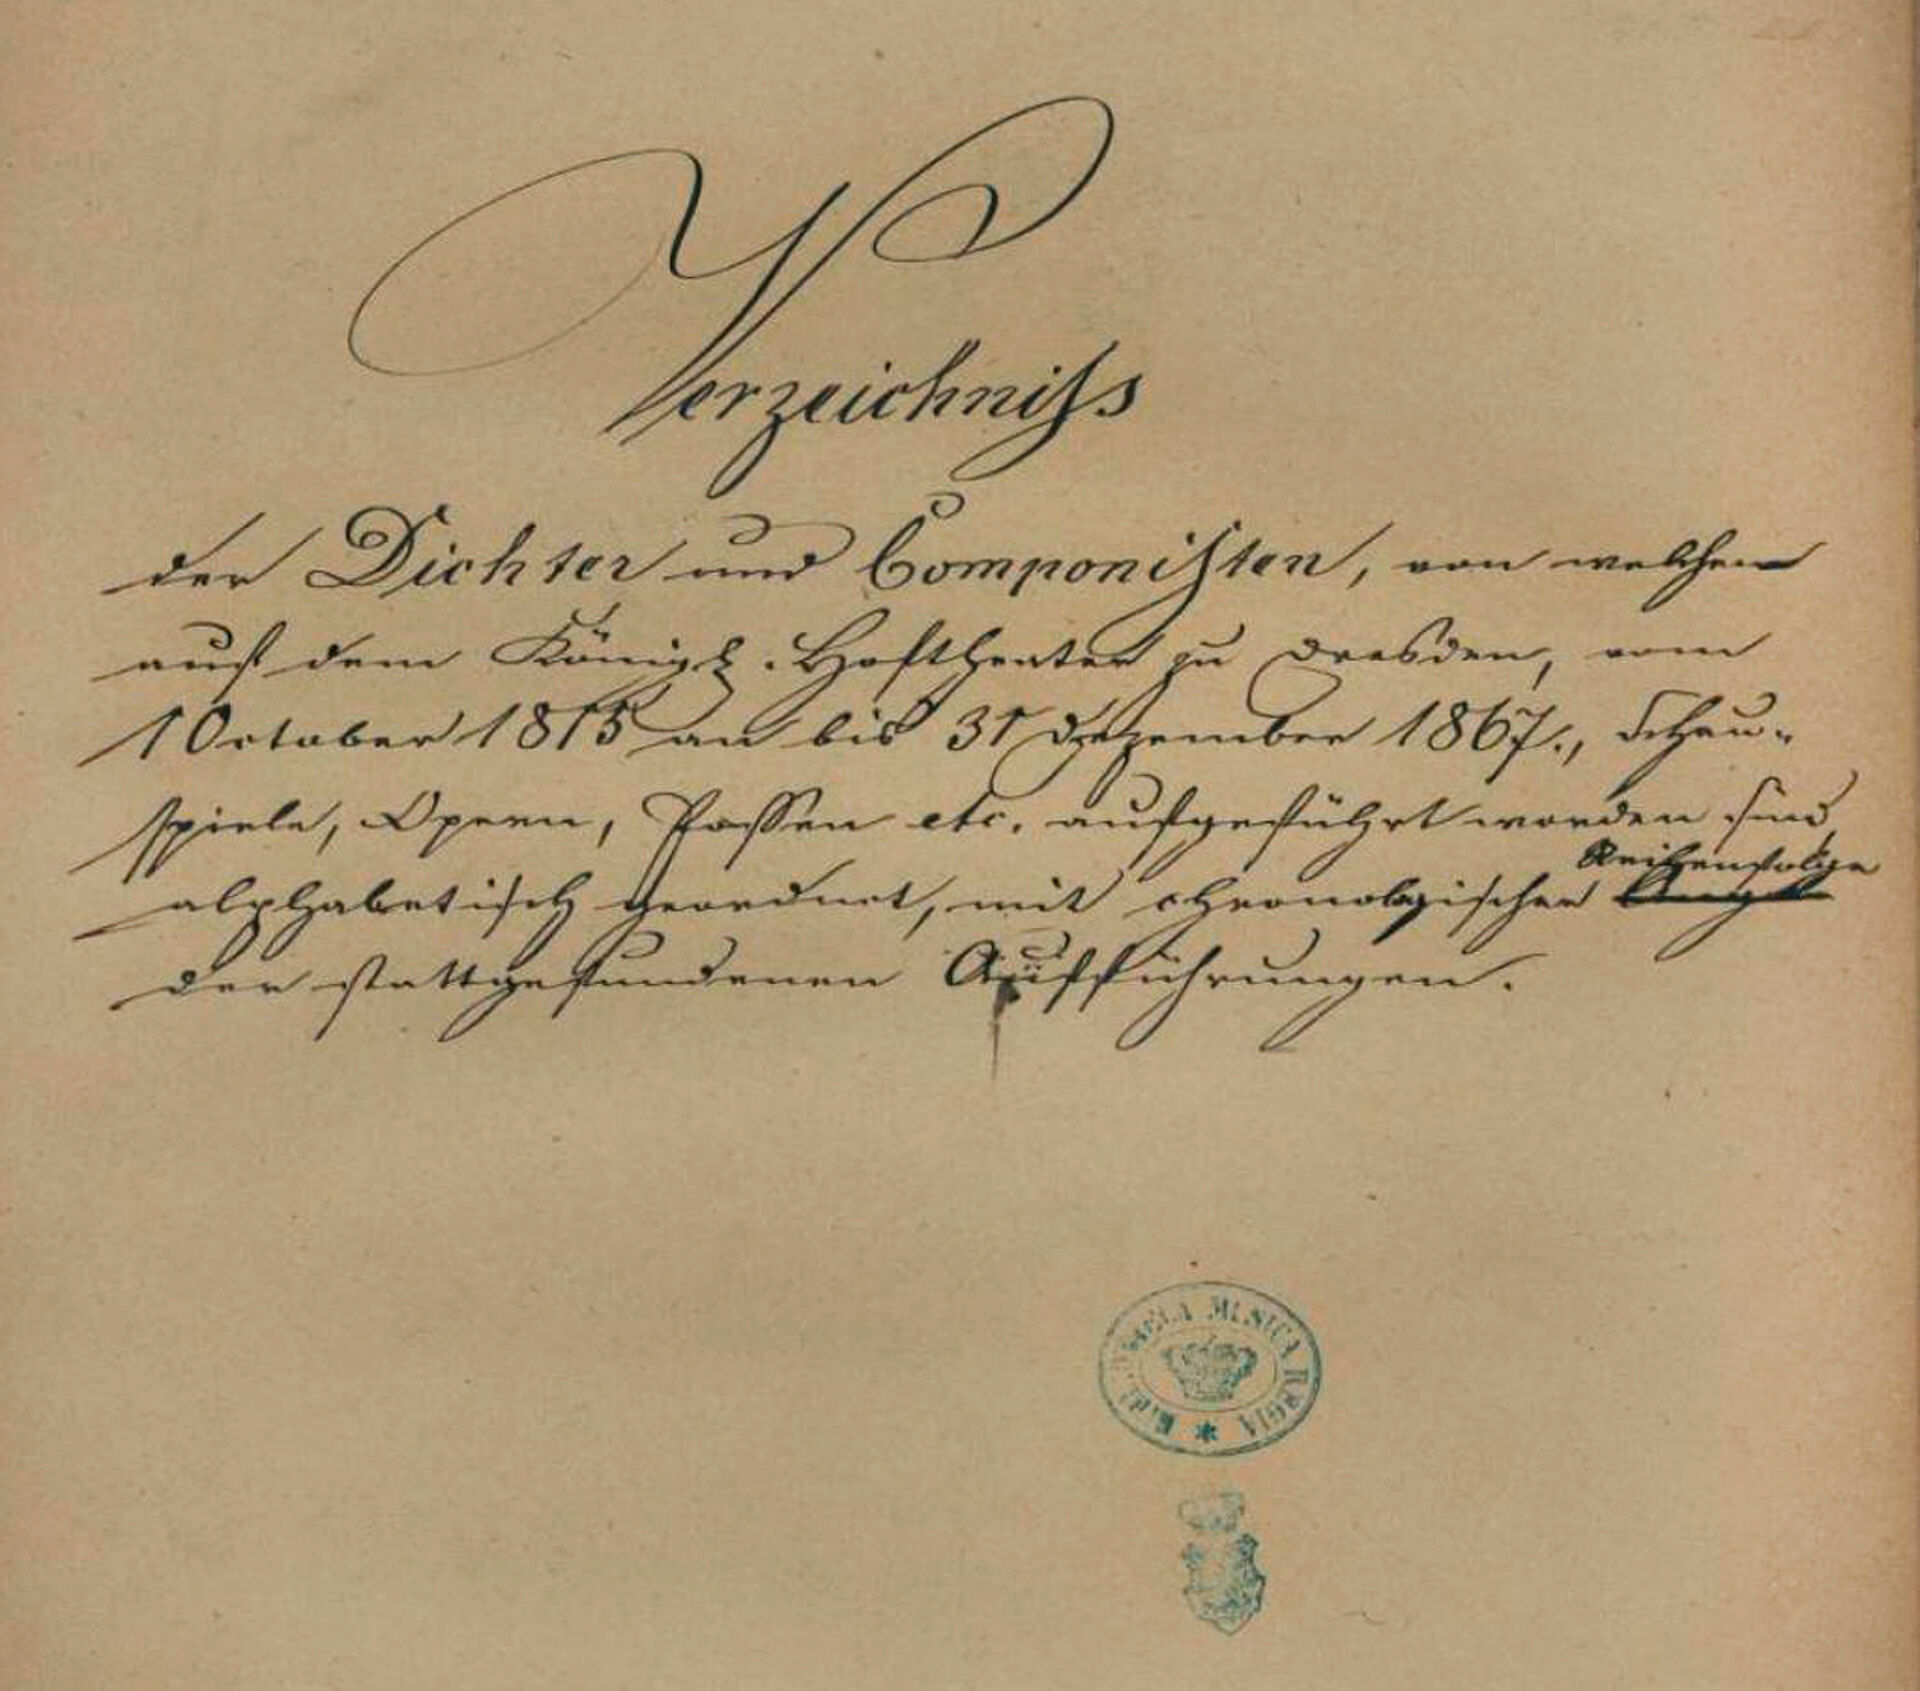 Verzeichniss
der Dichter und Componisten, von welchen
auf dem Königl. Hoftheater zu Dresden, vom
1 October 1815 an bis 31 Dezember 1867., Schau-
spiele, Opern, Possen etc. aufgeführt worden sind,
Reihenfolge
alphabetisch geordnet, mit chronologischer
der stattgefundenen Aufführungen.
MUSICA REGIA *